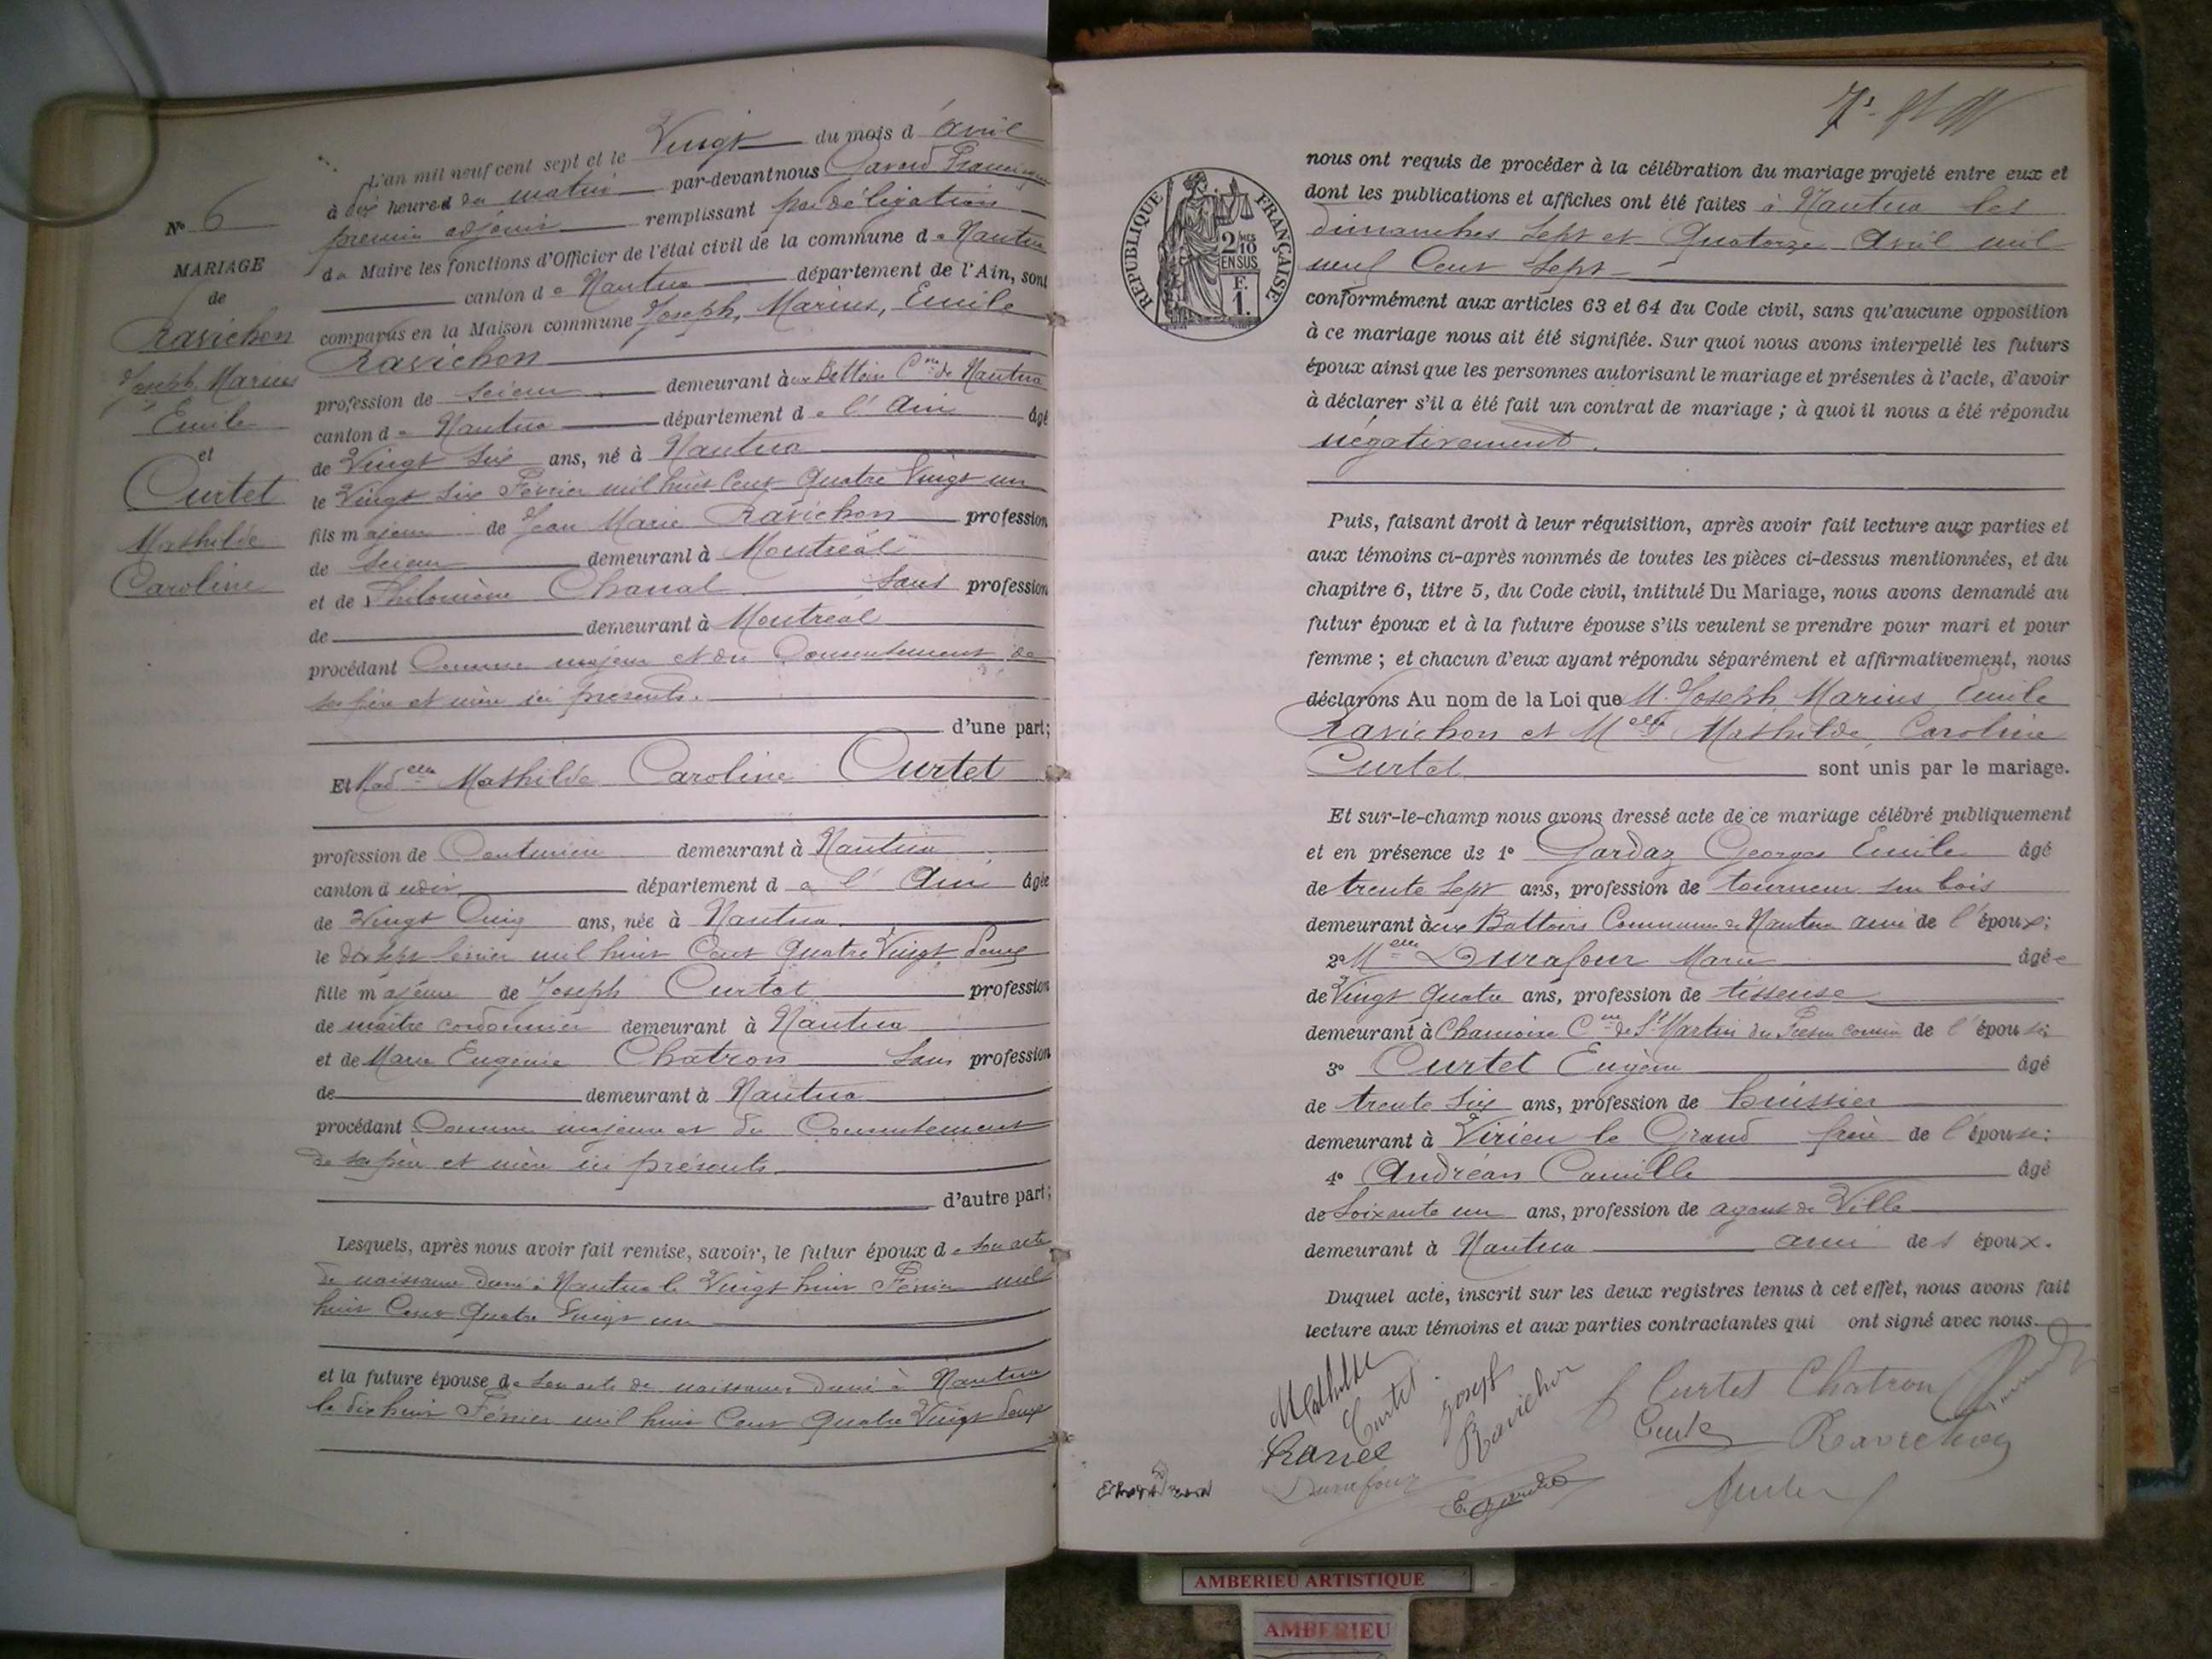 L'an mil neuf cent sept et le Vingt du mois d'Avril
à dix heures du matin par-devant nous Savard
premier adjoint remplissant par délégation
du Maire les fonctions d'Officier de l'état civil de la commune de Nantua
canton de Nantua département de l'Ain, sont
comparus en la Maison commune Joseph, Marius, Emile
Ravichon
profession de scieur demeurant aux Battoirs Cne de Nantua
canton de Nantua département de l'Ain âgé
de Vingt six ans, né à Nantua
le Vingt six Février mil huit Cent Quatre Vingt un
fils majeur de Jean Marie Ravichon profession
de scieur demeurant à Montréal
et de Philomène Chanal Sans profession
de demeurant à Montréal
procédant Comme majeur et du Consentement de
ses père et mère ici présents.
d'une part;
Et Madelle Mathilde Caroline Curtet
profession de Couturière demeurant à Nantua
canton d udit département de l'Ain âgée
de Vingt Cinq ans, née à Nantua
le dix sept février mil huit Cent Quatre Vingt deux
fille majeure de Joseph Curtet profession
de maître cordonnier demeurant à Nantua
et de Marie Eugénie Chatron Sans profession
de demeurant à Nantua
procédant Comme majeure et du Consentement
de ses père et mère ici présents.
d'autre part;
Lesquels, après nous avoir fait remise, savoir, le futur époux de son acte
de naissance dressé à Nantua le Vingt huit Février mil
huit Cent Quatre Vingt un
et la future épouse de son acte de naissance dressé à Nantua
le dix huit Février mil huit Cent Quatre Vingt deux
No 6
MARIAGE
de
Ravichon
Joseph Marius
Emile
et
Curtet
Mathilde
Caroline
REPUBLIQUE FRANÇAISE
2/10MES
EN SUS
F.
1.
nous ont requis de procéder à la célébration du mariage projeté entre eux et
dont les publications et affiches ont été faites à Nantua les
dimanches Sept et Quatorze Avril mil
neuf Cent Sept
conformément aux articles 63 et 64 du Code civil, sans qu'aucune opposition
à ce mariage nous ait été signifiée. Sur quoi nous avons interpellé les futurs
époux ainsi que les personnes autorisant le mariage et présentes à l'acte, d'avoir
à déclarer s'il a été fait un contrat de mariage ; à quoi il nous a été répondu
négativement.
Puis, faisant droit à leur réquisition, après avoir fait lecture aux parties et
aux témoins ci-après nommés de toutes les pièces ci-dessus mentionnées, et du
chapitre 6, titre 5, du Code civil, intitulé Du Mariage, nous avons demandé au
futur époux et à la future épouse s'ils veulent se prendre pour mari et pour
femme ; et chacun d'eux ayant répondu séparément et affirmativement, nous
déclarons Au nom de la Loi que M. Joseph Marius Emile
Ravichon et Melle Mathilde, Caroline
Curtet sont unis par le mariage.
Et sur-le-champ nous avons dressé acte de ce mariage célébré publiquement
et en présence de 1° Gardaz Georges Emile âgé
de trente Sept ans, profession de tourneur sur bois
demeurant aux Battoirs Commune de Nantua ami de l'époux;
2° Melle Durafour Marie âgée
de Vingt Quatre ans, profession de tisseuse
demeurant à Chamoise Cne de St Martin du Fresne cousine de l'épouse;
3° Curtet Eugène âgé
de trente six ans, profession de huissier
demeurant à Virieu le Grand frère de l'épouse;
4° Andréan Camille âgé
de Soixante un ans, profession de agent de Ville
demeurant à Nantua ami des époux.
Duquel acte, inscrit sur les deux registres tenus à cet effet, nous avons fait
lecture aux témoins et aux parties contractantes qui ont signé avec nous.
Mathilde Curtet
Joseph Ravichon
Curtet Chatron
Ravichon
Durafour
AMBERIEU ARTISTIQUE
AMBERIEU